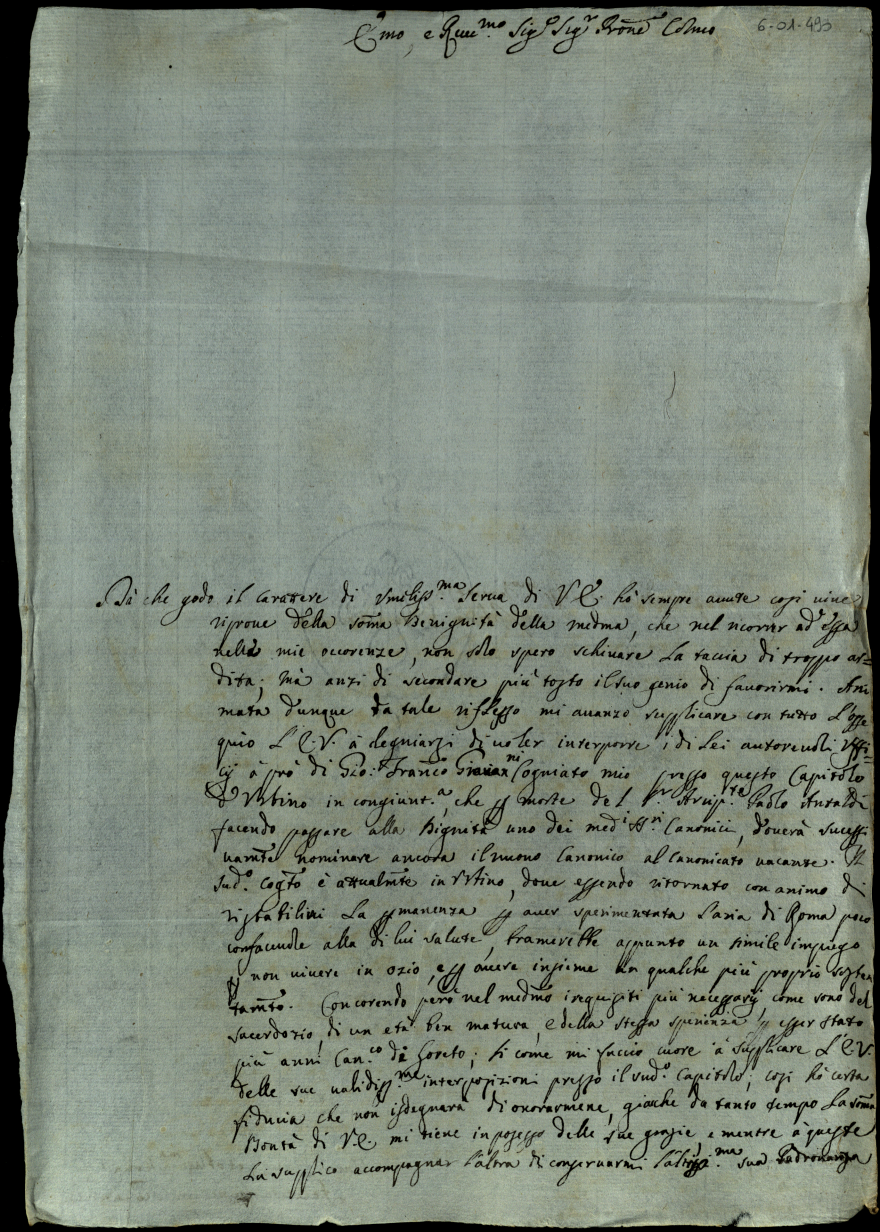 6-01-493
Emo, e Rev.mo Sig.r Sig.r Prone Colmo
Dà che godo il carattere di Umiliss.ma Serva di V. E. hò sempre avute così vive
riprove della soma Benignità della medma, che nel ricorrer ad essa
nelle mie occorenze, non solo spero schivare la taccia di troppo ar=
dita; mà anzi di secondare più tosto il suo genio di favorirmi. Ani
mata dunque da tale riflesso mi avanzo supplicare con tutto l'osse
quio l'E. V. à degniarsi di voler interporre i di Lei autorevoli Uffi=
cij à prò di Gio: Franco Cogniato mio presso questo Capitolo
d'Urbino in congiunt.a, che p morte del Arcip.te Paolo Antaldi
facendo passare alla Dignità uno dei med.i SS.ri Canonici, doverà sucessi
vamte nominare ancora il nuovo Canonico al Canonicato vacante. Il
sud.o cogto è attualmte in Urbino, dove essendo ritornato con animo di
ristabilirvi la pmanenza p aver sperimentata l'aria di Roma poco
confacevole alla di lui salute, bramerebbe appunto un simile impiego
p non vivere in ozio, e p avere insieme un qualche più proprio sosten
tamto. Concorendo però nel medmo i requisiti più necessarij come sono del
sacerdozio, di un età ben matura, e della stessa sperienza p esser stato
più anni Can.co di Loreto; si come mi faccio cuore à supplicare l'E. V.
delle sue validiss.me interposizioni presso il sud.o Capitolo; così hò certa
fiducia che non isdegnarà di onorarmene, giache da tanto tempo la soma
Bontà di V. E. mi tiene in possesso delle sue grazie, e mentre à queste
La supplico accompagnar l'altra di conservarmi sua Padronanza